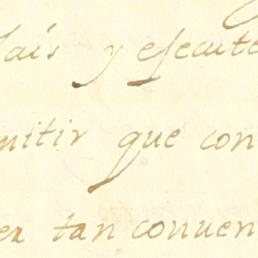 lais y esecute
mitir que con
en tan conuen